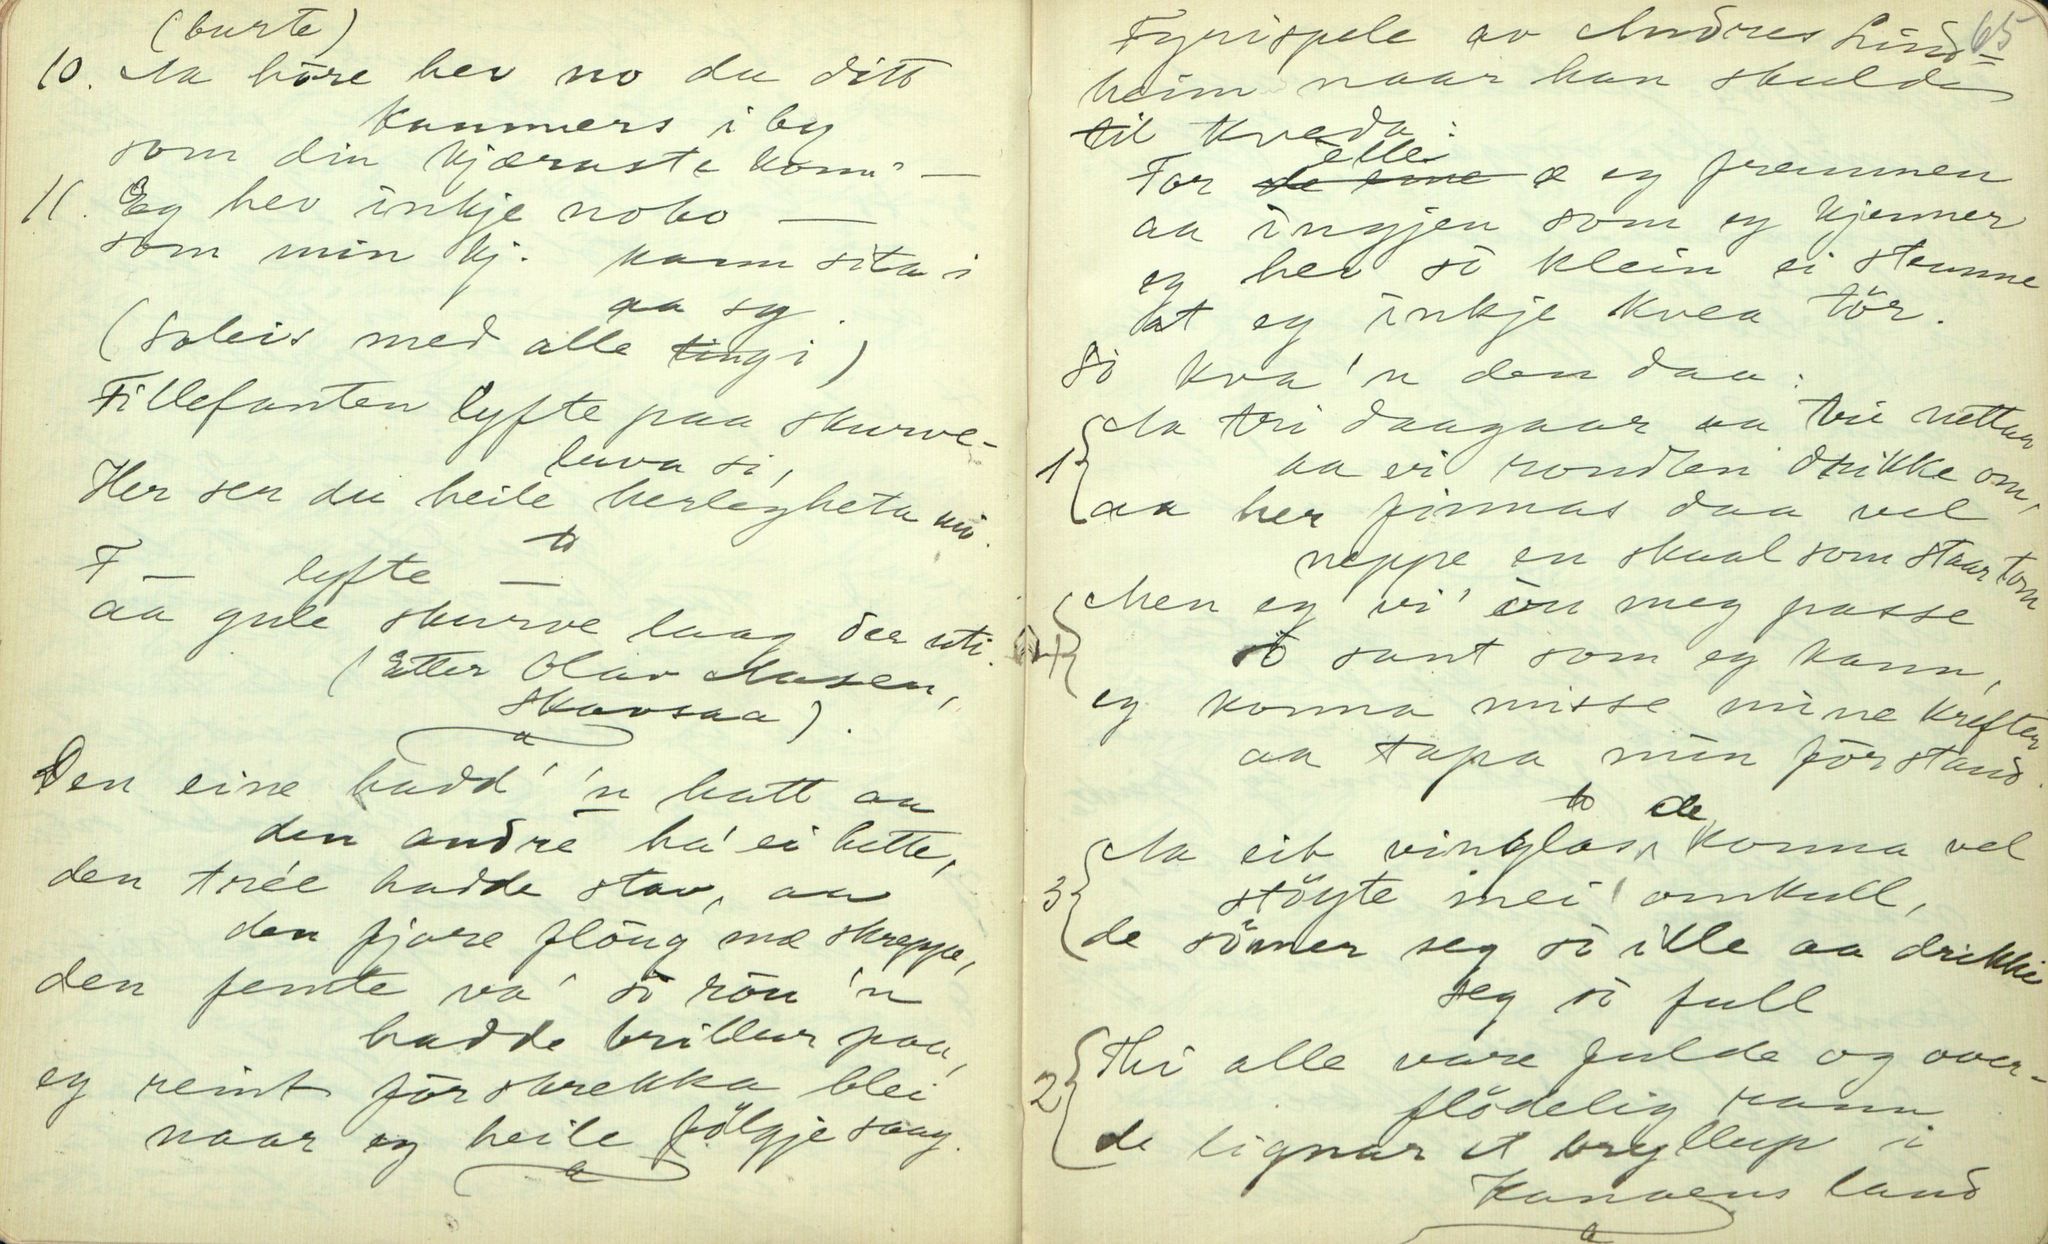 (burte)
10. Aa höre hev no du ditt
kammers i by
som din kjæraste kom' —
11. Eg hev inkje noko —
som min kj. kann sita i
aa sy.
(Soleis med alle ting i)
Fillefanten lyfte paa skurve-
luva si,
Her ser du heile herlegheta mi.
F — lyfte —
aa gule skurve laag der uti.
(Etter Olav Aasen,
Skavsaa).
Den eine hadd' 'n hatt aa
den andre ha' ei hette,
den trée hadde stav, aa
den fjore flöug mæ skreppe,
den femte va' so röu 'n
hadde brillur paa,
eg reint förskrekka blei
naar eg heile fölgje saag.
65
Fyrispele av Andres Lind-
heim naar han skulde
til kveda:
elle
For de eine æ eg fremmen
aa ingjen som eg kjenner
eg hev so klein ei stemme
at eg inkje kvea tör.
So kva 'n den daa:
1 Aa tri daagaar aa tri nettar
aa ei rondlen drikke om,
aa her finnas daa vel
neppe en skaal som staar tom
4 Men eg vi' ou meg passe
so sant som eg kann,
eg konna misse mine krefter
aa tapa min förstand.
3 Aa eit vinglas, de konna vel
stöyte mei omkull,
de sömer seg so ille aa drikke
seg so full
2 Thi alle vare fulde og over-
flödelig rann
de lignar et bryllup i
Kanaens land